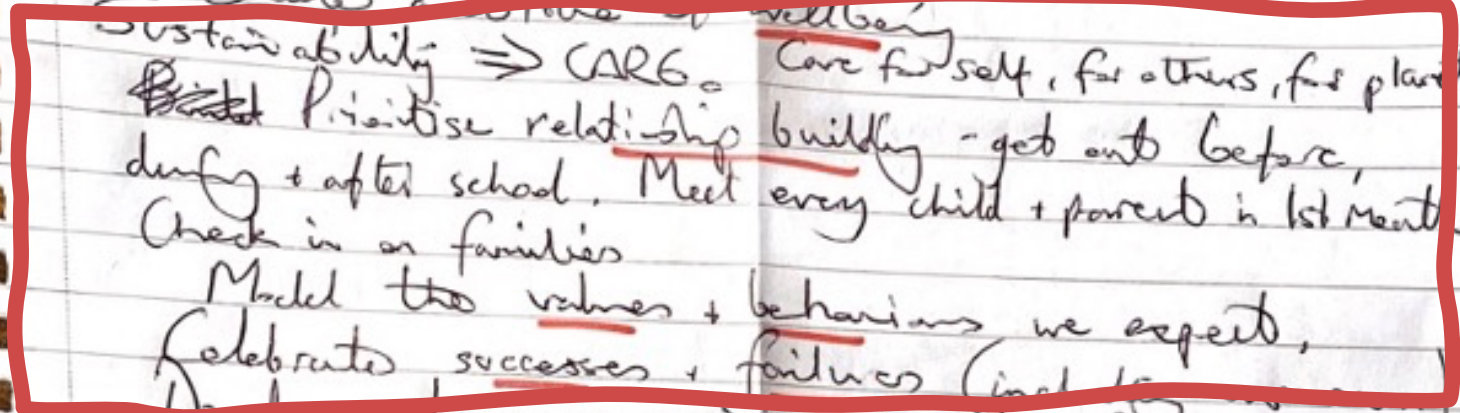 wellbeing
Sustainability ⇒ CARE. Care for self, for others, for
Prioritise relationship building - get out before,
during + after school. Meet every child + parent in 1st
Check in on families
Model the values + behaviours we expect,
Celebrate successes + failures (incl